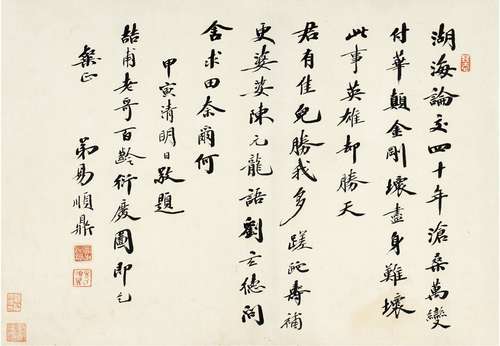 湖海論交四十年滄桑萬變
付華顛金剛壞盡身難壞
此事英雄却勝天
君有佳兒勝我多蹉跎壽補
更婆娑陳元龍語劉玄德問
舍求田奈爾何
甲寅清明日敬題
喆甫老哥百齡衍慶圖即乞
粲正 弟易順鼎